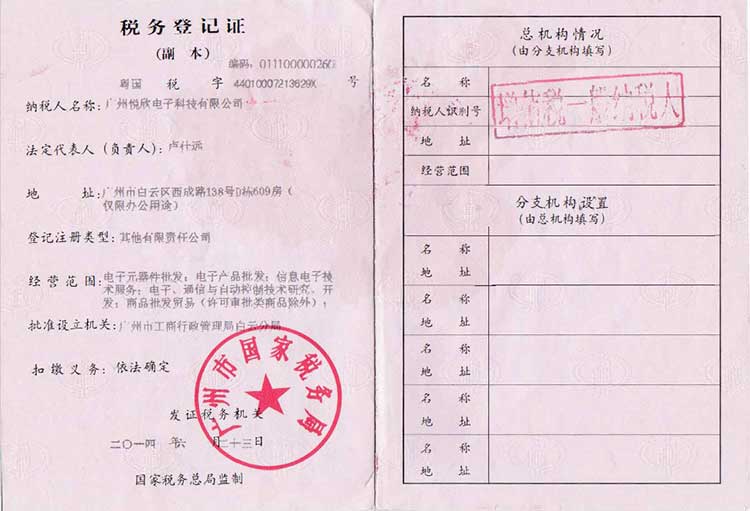 税务登记证
(副 本)
编码：01110000026
粤国 税 字 44010007213829X 号
纳税人名称：广州悦欣电子科技有限公司
法定代表人（负责人）：卢什远
地 址：广州市白云区西成路138号D栋609房（
仅限办公用途）
登记注册类型：其他有限责任公司
经营范围：电子元器件批发；电子产品批发；信息电子技
术服务；电子、通信与自动控制技术研究、开
发；商品批发贸易（许可审批类商品除外）；
批准设立机关：广州市工商行政管理局白云分局
扣缴义务：依法确定
广州市国家税务局
发证税务机关
二〇一四 年 六 月 二十三日
国家税务总局监制
总机构情况
(由分支机构填写)
名 称
纳税人识别号
增值税一般纳税人
地 址
经营范围
分支机构设置
(由总机构填写)
名 称
地 址
名 称
地 址
名 称
地 址
名 称
地 址
名 称
地 址